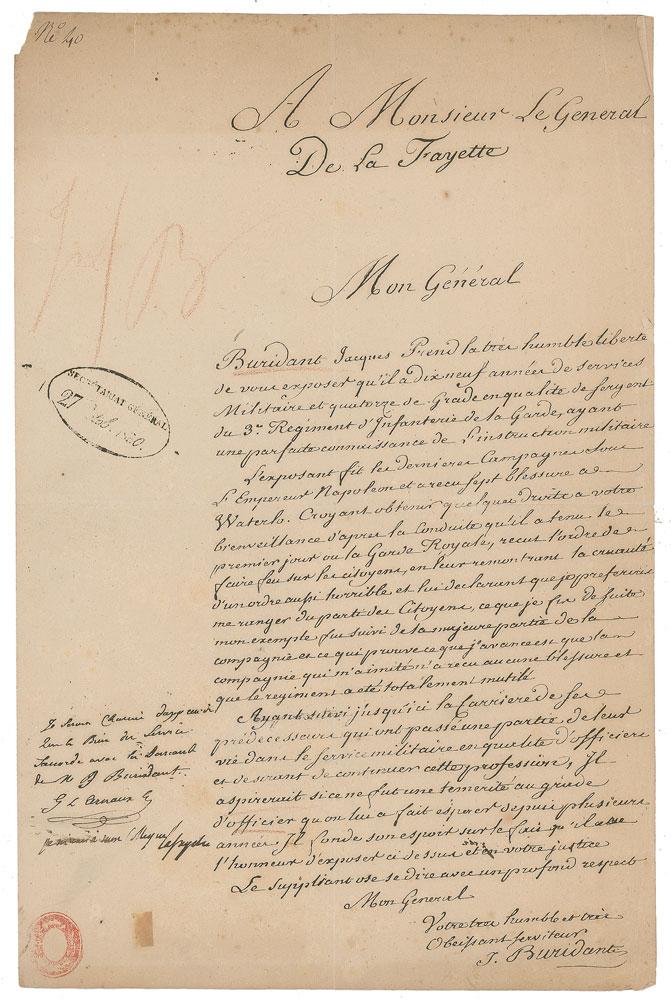 No 40
A Monsieur Le General
De La Fayette
Mon Général
Buridant Jacques Prend la très humble liberté
de vous exposer qu'il a dix neuf années de services
Militaire et quatorze de Grade en qualité de sergent
du 3e Regiment d'Infanterie de la Garde, ayant
une parfaite connaissance de L'instruction militaire
L'exposant fit les dernieres Campagnes sous
L'Empereur Napoleon et a recu sept blessure a
Waterlo. Croyant obtenir quelques droits a votre
bienveillance d'apres la Conduite qu'il a tenu le
premier jour ou la Garde Royale, recut l'ordre de
faire feu sur les citoyens, en leur remontrant la cruauté
d'un ordre aussi horrible et lui declarant que je preferois
me ranger du parti des Citoyens, ce que je fis de suite
mon exemple fut suivi de la majeure partie de la
compagnie et ce qui prouve ce que j'avance est que la
compagnie qui m'a imité n'a recu aucune blessure et
que le regiment a été totalement mutilé
Ayant suivi jusqu'ici la Carriere de ses
prédecessaire qui ont passé une partie de leur
vie dans le service militaire en qualité d'officiers
et desirant de continuer cette profession, Il
aspireroit si ce ne fut une temerité au grade
d'officier qu'on lui a fait esperer depuis plusieurs
année. Il fonde son espoir sur le fait qu'il a eu
l'honneur d'exposer ci dessus et en votre justice
Le suppliant ose se dire avec un profond respect
Mon General
Votre tres humble et tres
Obeissant serviteur
J. Buridant
SECRÉTARIAT GÉNÉRAL
27
sur le Bien du Service
de M J Buridant